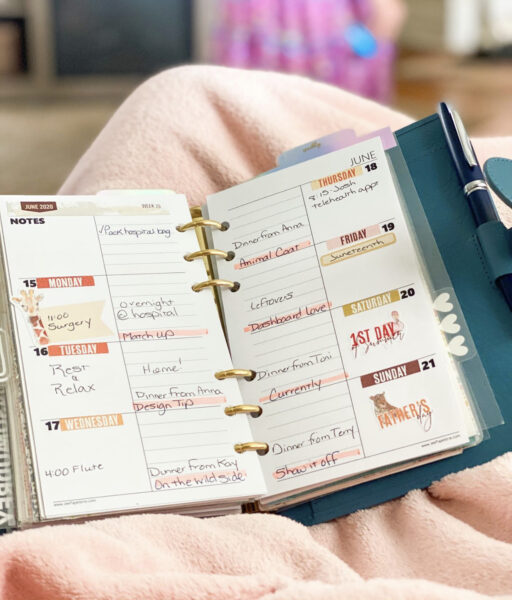 JUNE 2020
WEEK 25
NOTES
✓Pack hospital bag
15 MONDAY
11:00
Surgery
overnight
@ hospital
Match up
16 TUESDAY
Rest
&
Relax
Home!
Dinner from Anna
Design Tip
17 WEDNESDAY
4:00 Flute
Dunner from Kay
On the wild side
JUNE
THURSDAY 18
8:15-Josh
telehealth appt
Dinner from Anna
Animal Coat
FRIDAY 19
Juneteenth
Leftovers
Dashboard Love
SATURDAY 20
1ST DAY
of summer
Dinner from Toni
Currently
SUNDAY 21
FATHER'S
day
Dinner from Terry
Show it off